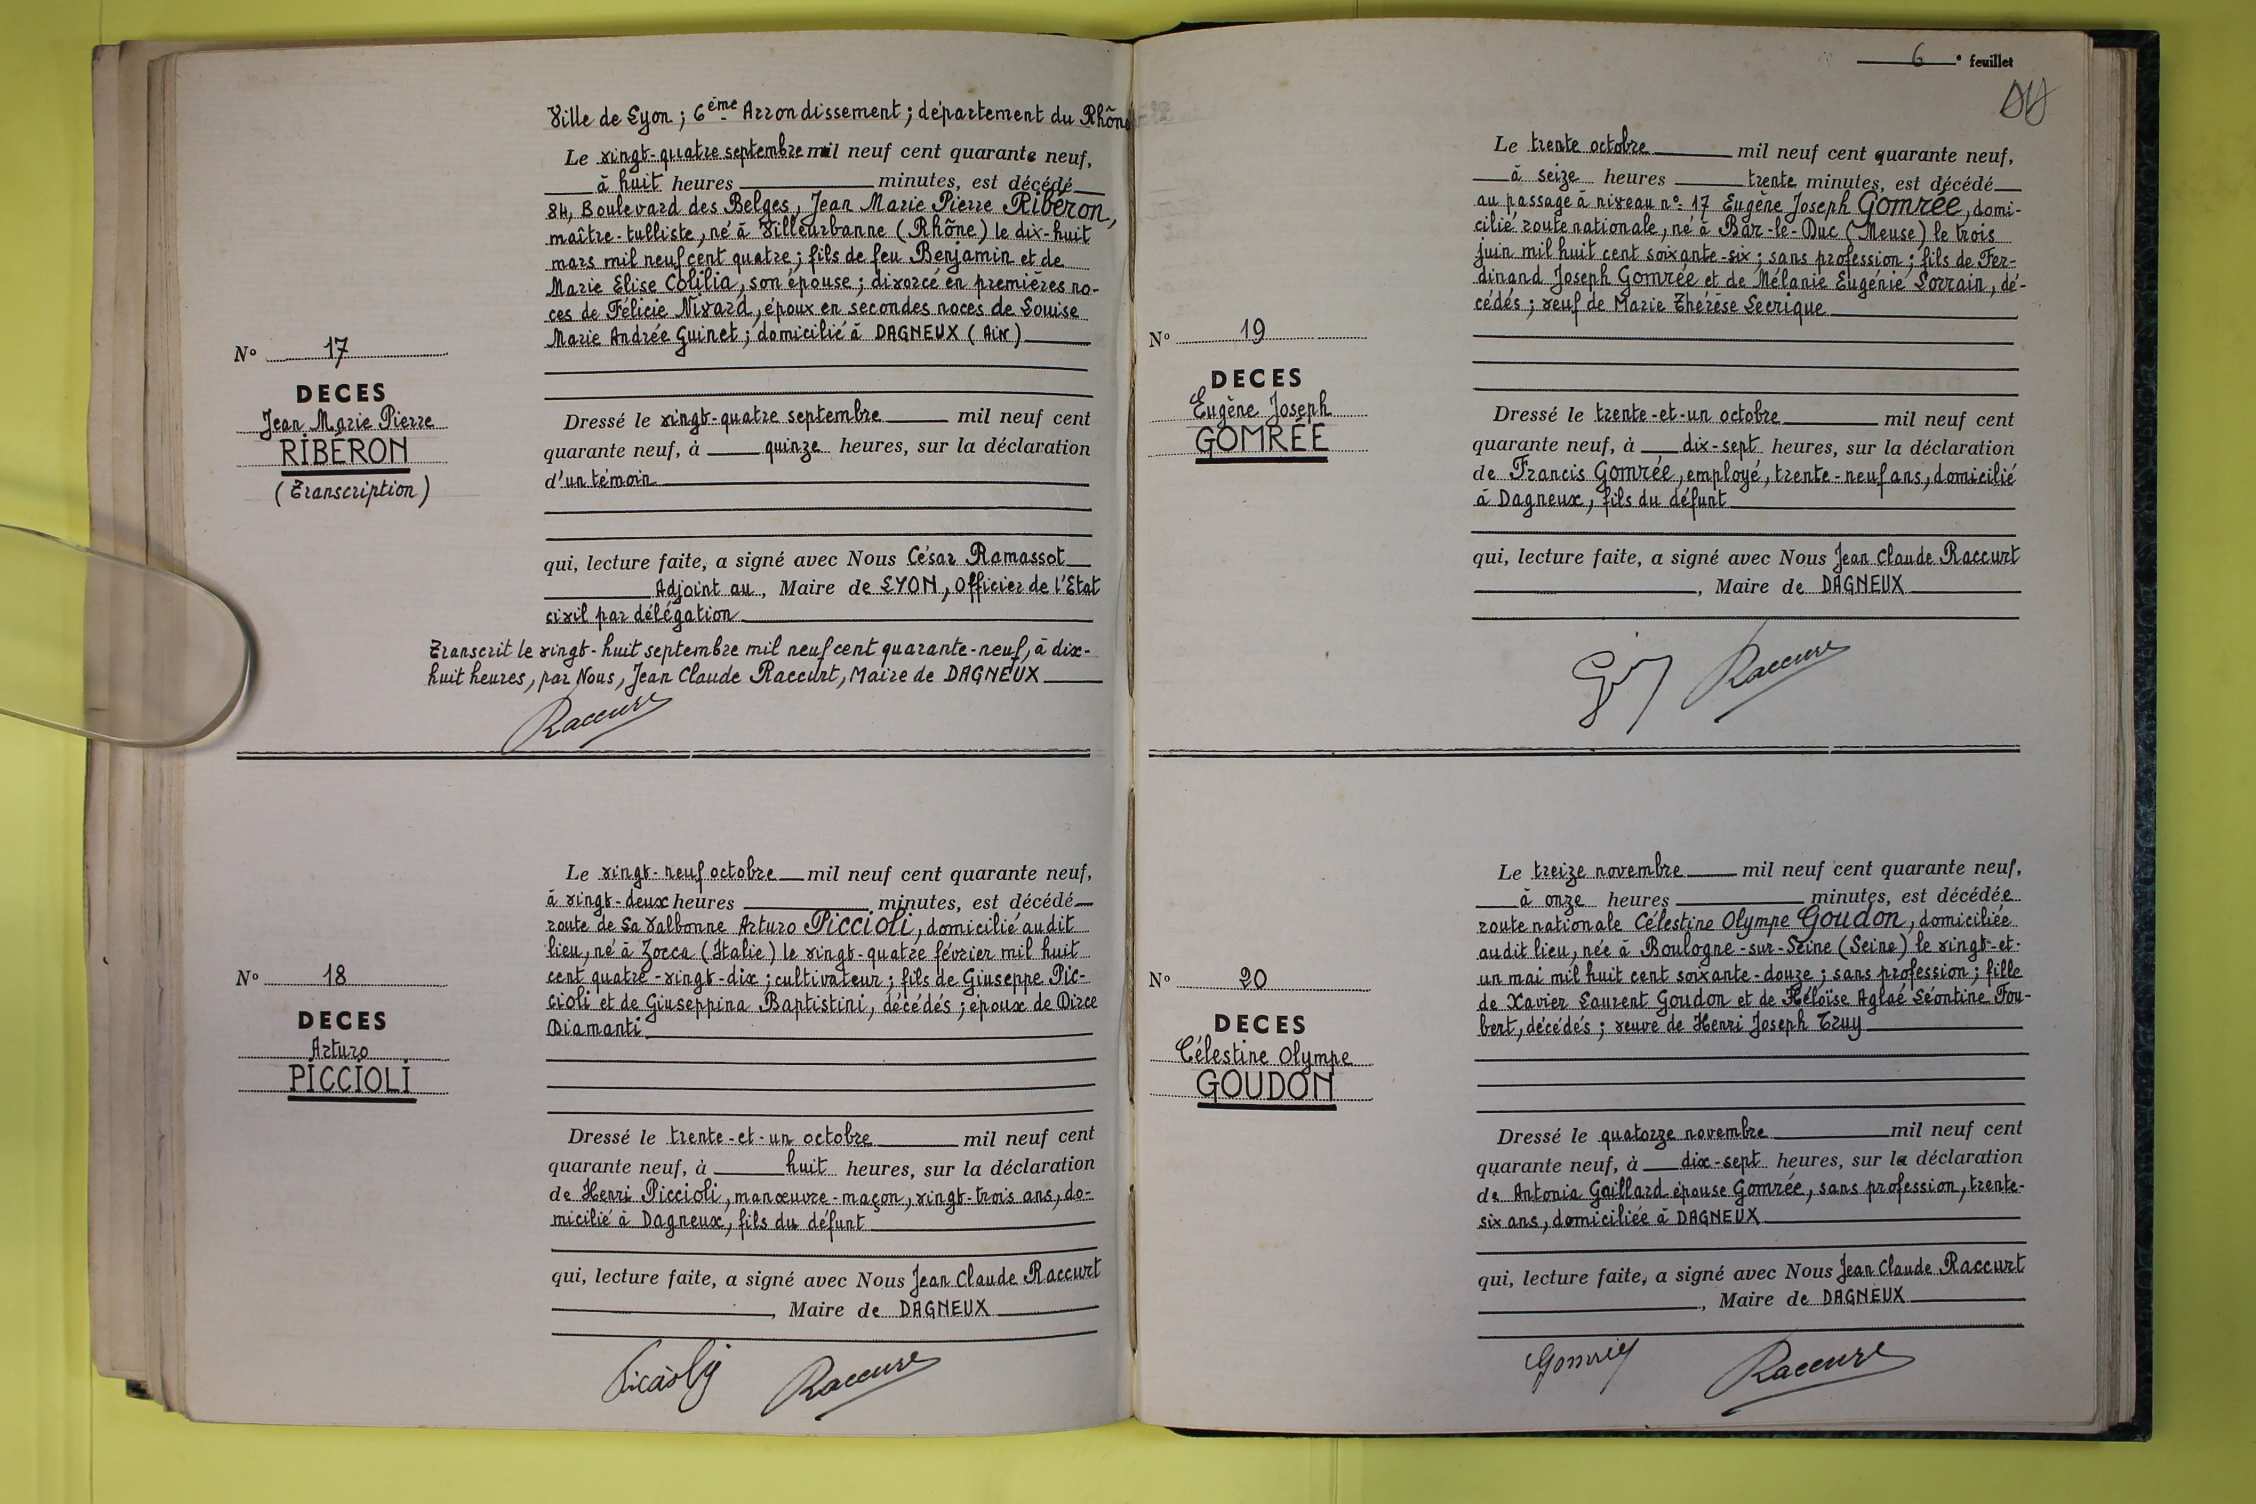 Ville de Lyon ; 6ème Arrondissement ; département du Rhône
Le vingt-quatre septembre mil neuf cent quarante neuf,
à huit heures minutes, est décédé
84, Boulevard des Belges, Jean Marie Pierre Ribéron,
maître-tulliste, né à Villeurbanne (Rhône) le dix-huit
mars mil neuf cent quatre ; fils de feu Benjamin et de
Marie Elise Colilia, son épouse ; divorcé en premières no-
ces de Félicie Nivard, époux en secondes noces de Louise
Marie Andrée Guinet ; domicilié à DAGNEUX (Ain)
N° 17
DECES
Jean Marie Pierre
RIBÉRON
(Transcription)
Dressé le vingt-quatre septembre mil neuf cent
quarante neuf, à quinze heures, sur la déclaration
d'un témoin
qui, lecture faite, a signé avec Nous César Ramassot
Adjoint au, Maire de LYON, Officier de l'Etat
civil par délégation
Transcrit le vingt-huit septembre mil neuf cent quarante-neuf, à dix-
huit heures, par Nous, Jean Claude Raccurt, Maire de DAGNEUX
Raccurt
Le vingt-neuf octobre mil neuf cent quarante neuf,
à vingt-deux heures minutes, est décédé
route de La Valbonne Arturo Piccioli, domicilié audit
lieu, né à Zocca (Italie) le vingt-quatre février mil huit
cent quatre-vingt-dix ; cultivateur ; fils de Giuseppe Pic-
cioli et de Giuseppina Baptistini, décédés ; époux de Dirce
Diamanti
N° 18
DECES
Arturo
PICCIOLI
Dressé le trente-et-un octobre mil neuf cent
quarante neuf, à huit heures, sur la déclaration
de Henri Piccioli, manœuvre-maçon, vingt-trois ans, do-
micilié à Dagneux, fils du défunt
qui, lecture faite, a signé avec Nous Jean Claude Raccurt
, Maire de DAGNEUX
Raccurt
6e feuillet
Le trente octobre mil neuf cent quarante neuf,
à seize heures trente minutes, est décédé
au passage à niveau n° 17 Eugène Joseph Gomrée, domi-
cilié route nationale, né à Bar-le-Duc (Meuse) le trois
juin mil huit cent soixante-six ; sans profession ; fils de Fer-
dinand Joseph Gomrée et de Mélanie Eugénie Lorrain, dé-
cédés ; veuf de Marie Thérèse Lecrique
N° 19
DECES
Eugène Joseph
GOMRÉE
Dressé le trente-et-un octobre mil neuf cent
quarante neuf, à dix-sept heures, sur la déclaration
de Francis Gomrée, employé, trente-neuf ans, domicilié
à Dagneux, fils du défunt
qui, lecture faite, a signé avec Nous Jean Claude Raccurt
, Maire de DAGNEUX
Raccurt
Le treize novembre mil neuf cent quarante neuf,
à onze heures minutes, est décédée
route nationale Célestine Olympe Goudon, domiciliée
audit lieu, née à Boulogne-sur-Seine (Seine) le vingt-et-
un mai mil huit cent soixante-douze ; sans profession ; fille
de Xavier Laurent Goudon et de Héloïse Aglaé Léontine Fou-
bert, décédés ; veuve de Henri Joseph Truy
N° 20
DECES
Célestine Olympe
GOUDON
Dressé le quatorze novembre mil neuf cent
quarante neuf, à dix-sept heures, sur la déclaration
de Antonia Gaillard épouse Gomrée, sans profession, trente-
six ans, domiciliée à DAGNEUX
qui, lecture faite, a signé avec Nous Jean Claude Raccurt
, Maire de DAGNEUX
Gomrée Raccurt